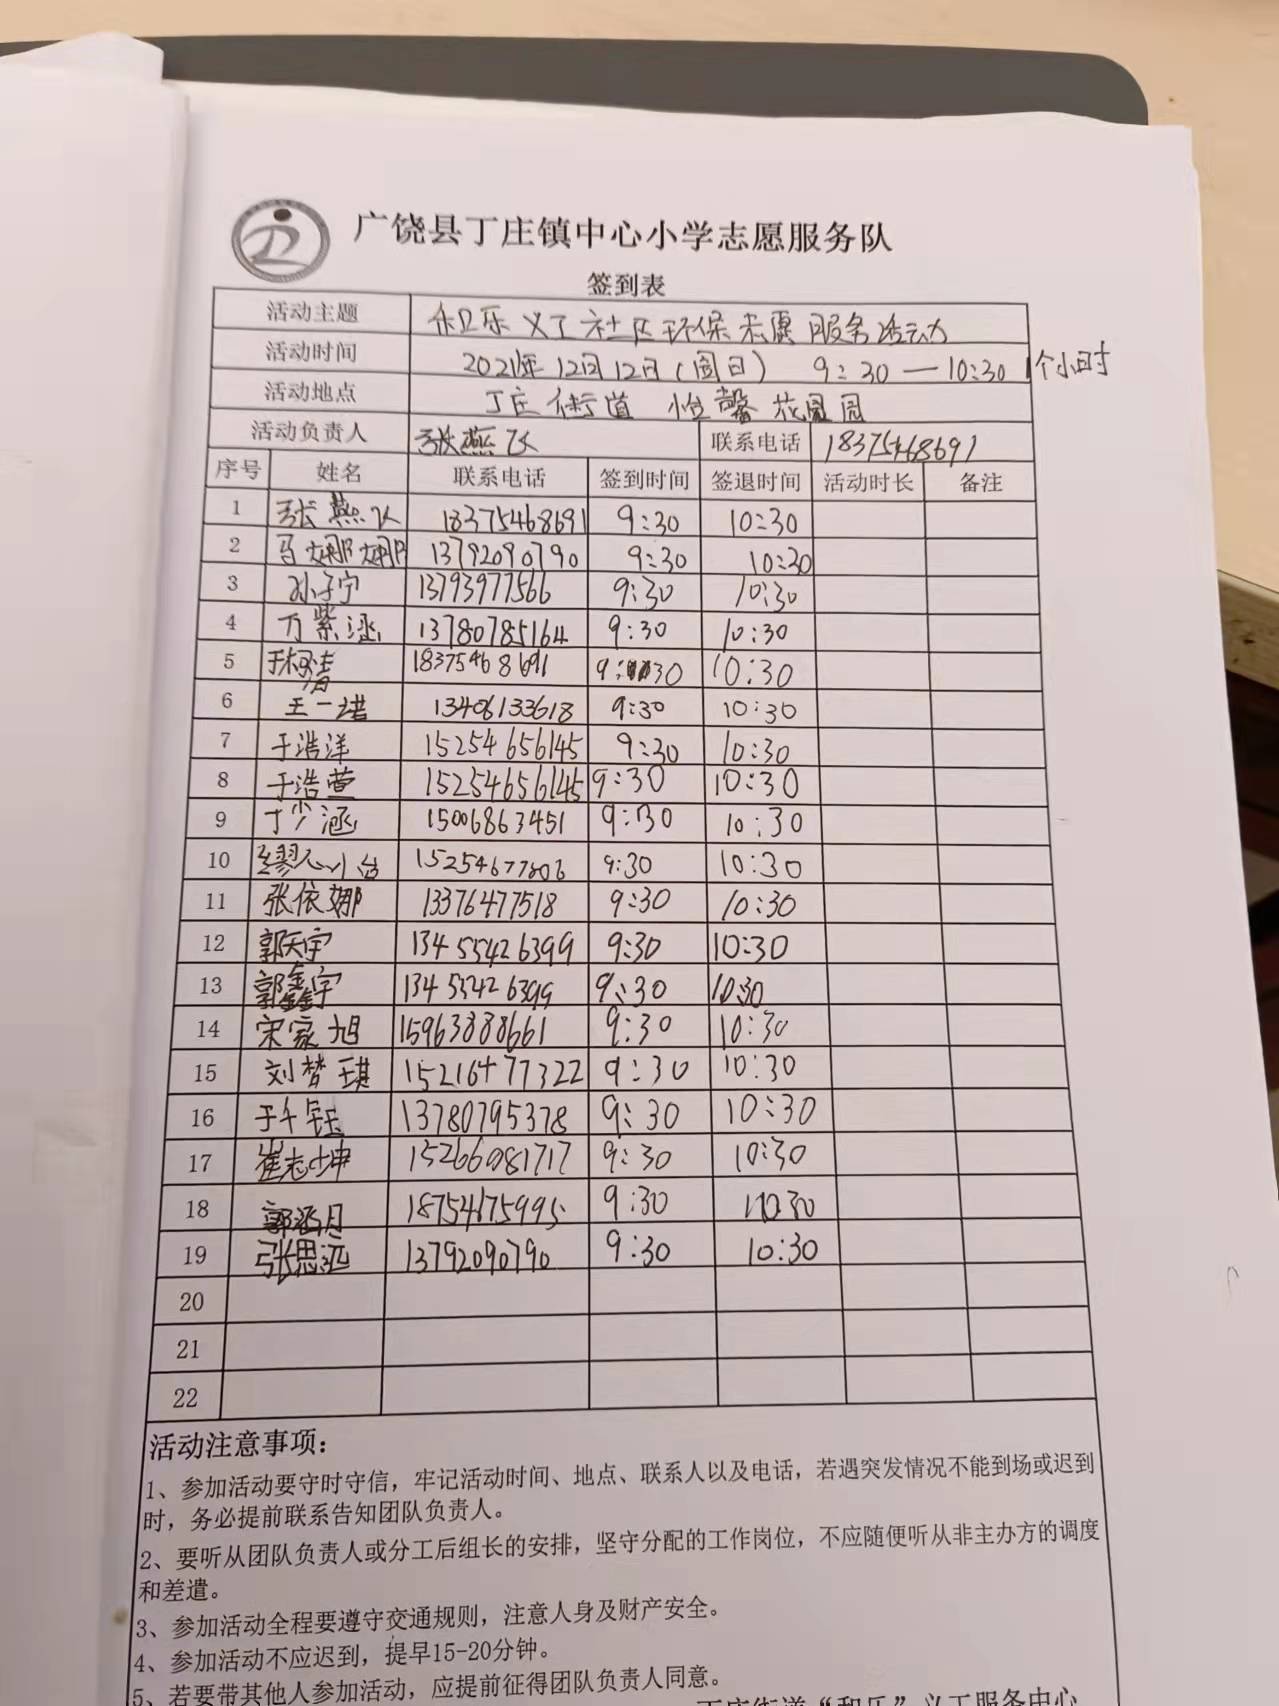 广饶县丁庄镇中心小学志愿服务队
签到表
活动主题 和乐义工社区环保志愿服务活动
活动时间 2021年12月12日(周日) 9:30—10:30 1个小时
活动地点 丁庄街道 恒馨花園园
活动负责人 张燕飞 联系电话 18375468691
序号 姓名 联系电话 签到时间 签退时间 活动时长 备注
1 张燕飞 18375468691 9:30 10:30
2 马娜娜 13792090790 9:30 10:30
3 孙子宁 13793977566 9:30 10:30
4 万紫涵 13780785164 9:30 10:30
5 18375468691 9:30 10:30
6 王一诺 13406133618 9:30 10:30
7 于浩洋 15254656145 9:30 10:30
8 于浩萱 15254656145 9:30 10:30
9 丁少涵 15006863451 9:30 10:30
10 15254677806 9:30 10:30
11 张依娜 13376477518 9:30 10:30
12 郭天宇 13455426399 9:30 10:30
13 郭鑫宇 13455426399 9:30 10:30
14 宋家旭 15963888661 9:30 10:30
15 刘梦琪 15216477322 9:30 10:30
16 于千钰 13780795378 9:30 10:30
17 崔志坤 15266081717 9:30 10:30
18 18754675995 9:30 10:30
19 张思远 13792090790 9:30 10:30
20
21
22
活动注意事项:
1、参加活动要守时守信,牢记活动时间、地点、联系人以及电话,若遇突发情况不能到场或迟到
时,务必提前联系告知团队负责人。
2、要听从团队负责人或分工后组长的安排,坚守分配的工作岗位,不应随便听从非主办方的调度
和差遣。
3、参加活动全程要遵守交通规则,注意人身及财产安全。
4、参加活动不应迟到,提早15-20分钟。
5、若要带其他人参加活动,应提前征得团队负责人同意。
丁庄街道“和乐”义工服务中心